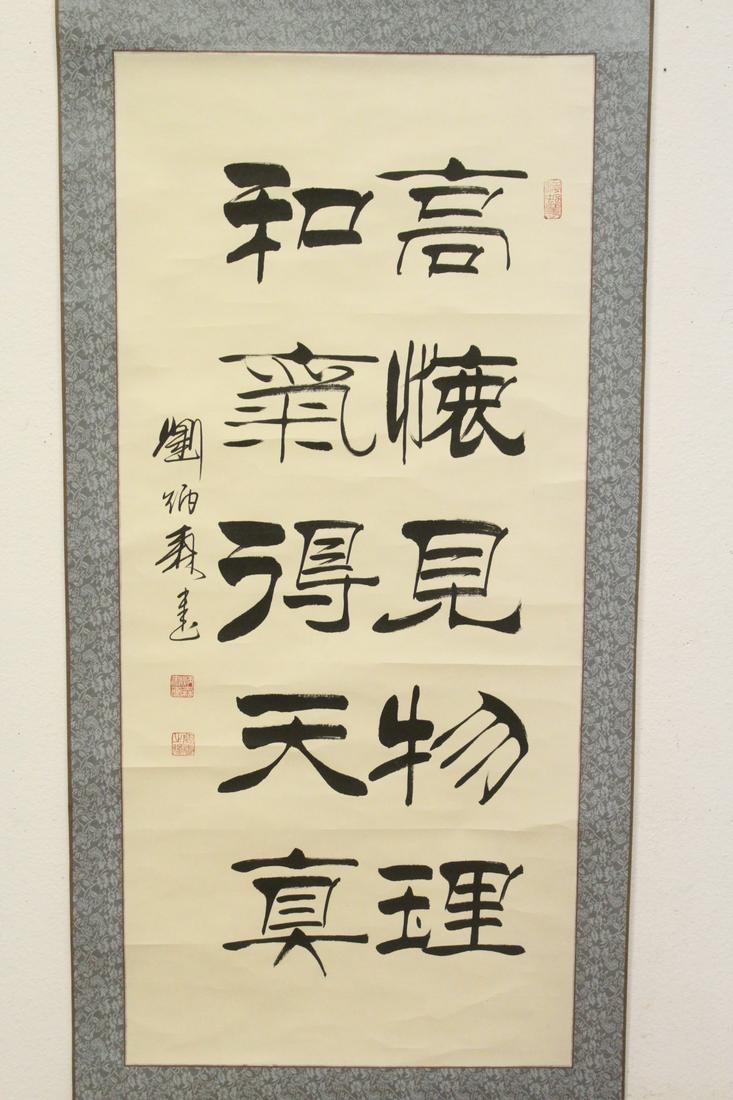 高懷見物理
和氣得天真
劉炳森書